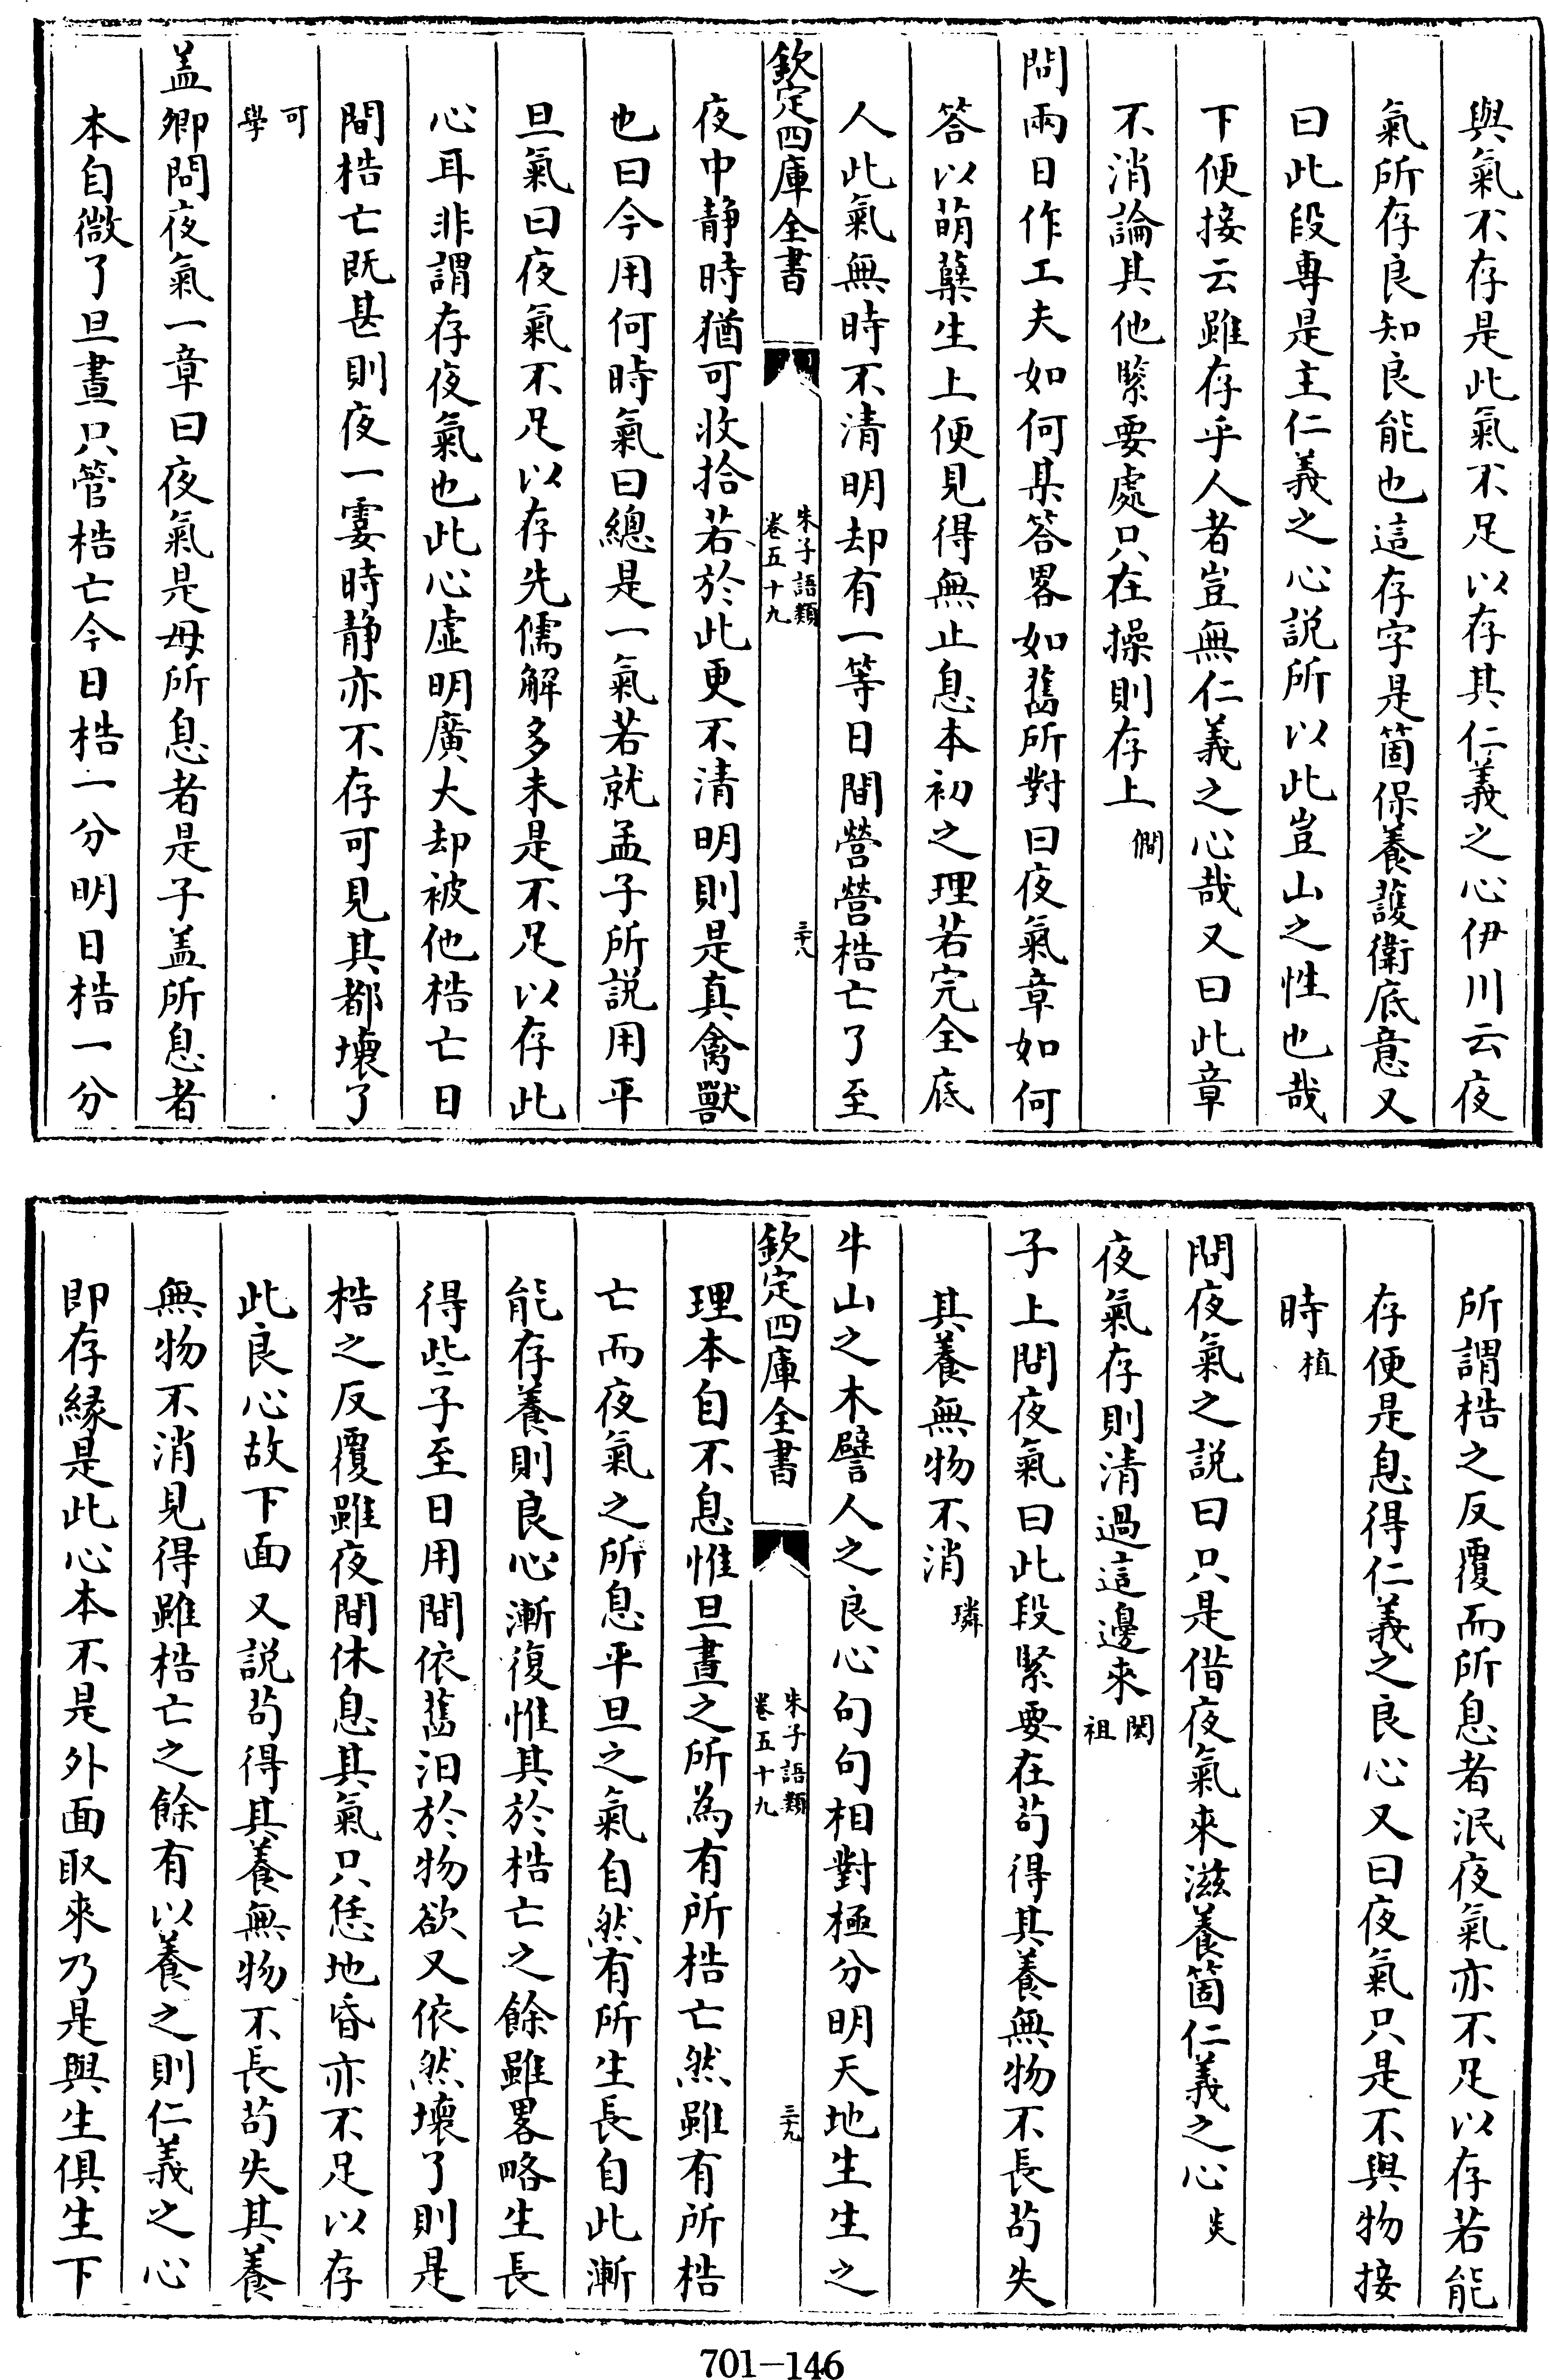 與氣不存是此氣不足以存其仁義之心伊川云夜
氣所存良知良能也這存字是箇保養護衛底意又
曰此段専是主仁義之心説所以此豈山之性也哉
下便接云雖存乎人者豈無仁義之心哉又曰此章
不消論其他緊要處只在操則存上僩
問兩日作工夫如何某答畧如舊所對曰夜氣章如何
答以萌蘖生上便見得無止息本初之理若完全底
人此氣無時不清明却有一等日間營營梏亡了至
欽定四庫全書
朱子語類
卷五十九
三十八
夜中静時猶可收拾若於此更不清明則是真禽獸
也曰今用何時氣曰總是一氣若就孟子所説用平
旦氣曰夜氣不足以存先儒解多未是不足以存此
心耳非謂存夜氣也此心虚明廣大却被他梏亡日
間梏亡既甚則夜一霎時静亦不存可見其都壞了
可學
盖卿問夜氣一章曰夜氣是母所息者是子盖所息者
本自微了旦晝只管梏亡今日梏一分明日梏一分
所謂梏之反覆而所息者泯夜氣亦不足以存若能
存便是息得仁義之良心又曰夜氣只是不與物接
時植
問夜氣之説曰只是借夜氣來滋養箇仁義之心炎
夜氣存則清過這邊來閎祖
子上問夜氣曰此段緊要在茍得其養無物不長茍失
其養無物不消璘
牛山之木譬人之良心句句相對極分明天地生生之
欽定四庫全書
朱子語類
卷五十九
三十九
理本自不息惟旦晝之所為有所梏亡然雖有所梏
亡而夜氣之所息平旦之氣自然有所生長自此漸
能存養則良心漸復惟其於梏亡之餘雖畧略生長
得些子至日用間依舊汨於物欲又依然壞了則是
梏之反覆雖夜間休息其氣只恁地昏亦不足以存
此良心故下面又説茍得其養無物不長茍失其養
無物不消見得雖梏亡之餘有以養之則仁義之心
即存縁是此心本不是外面取來乃是與生俱生下
701-146